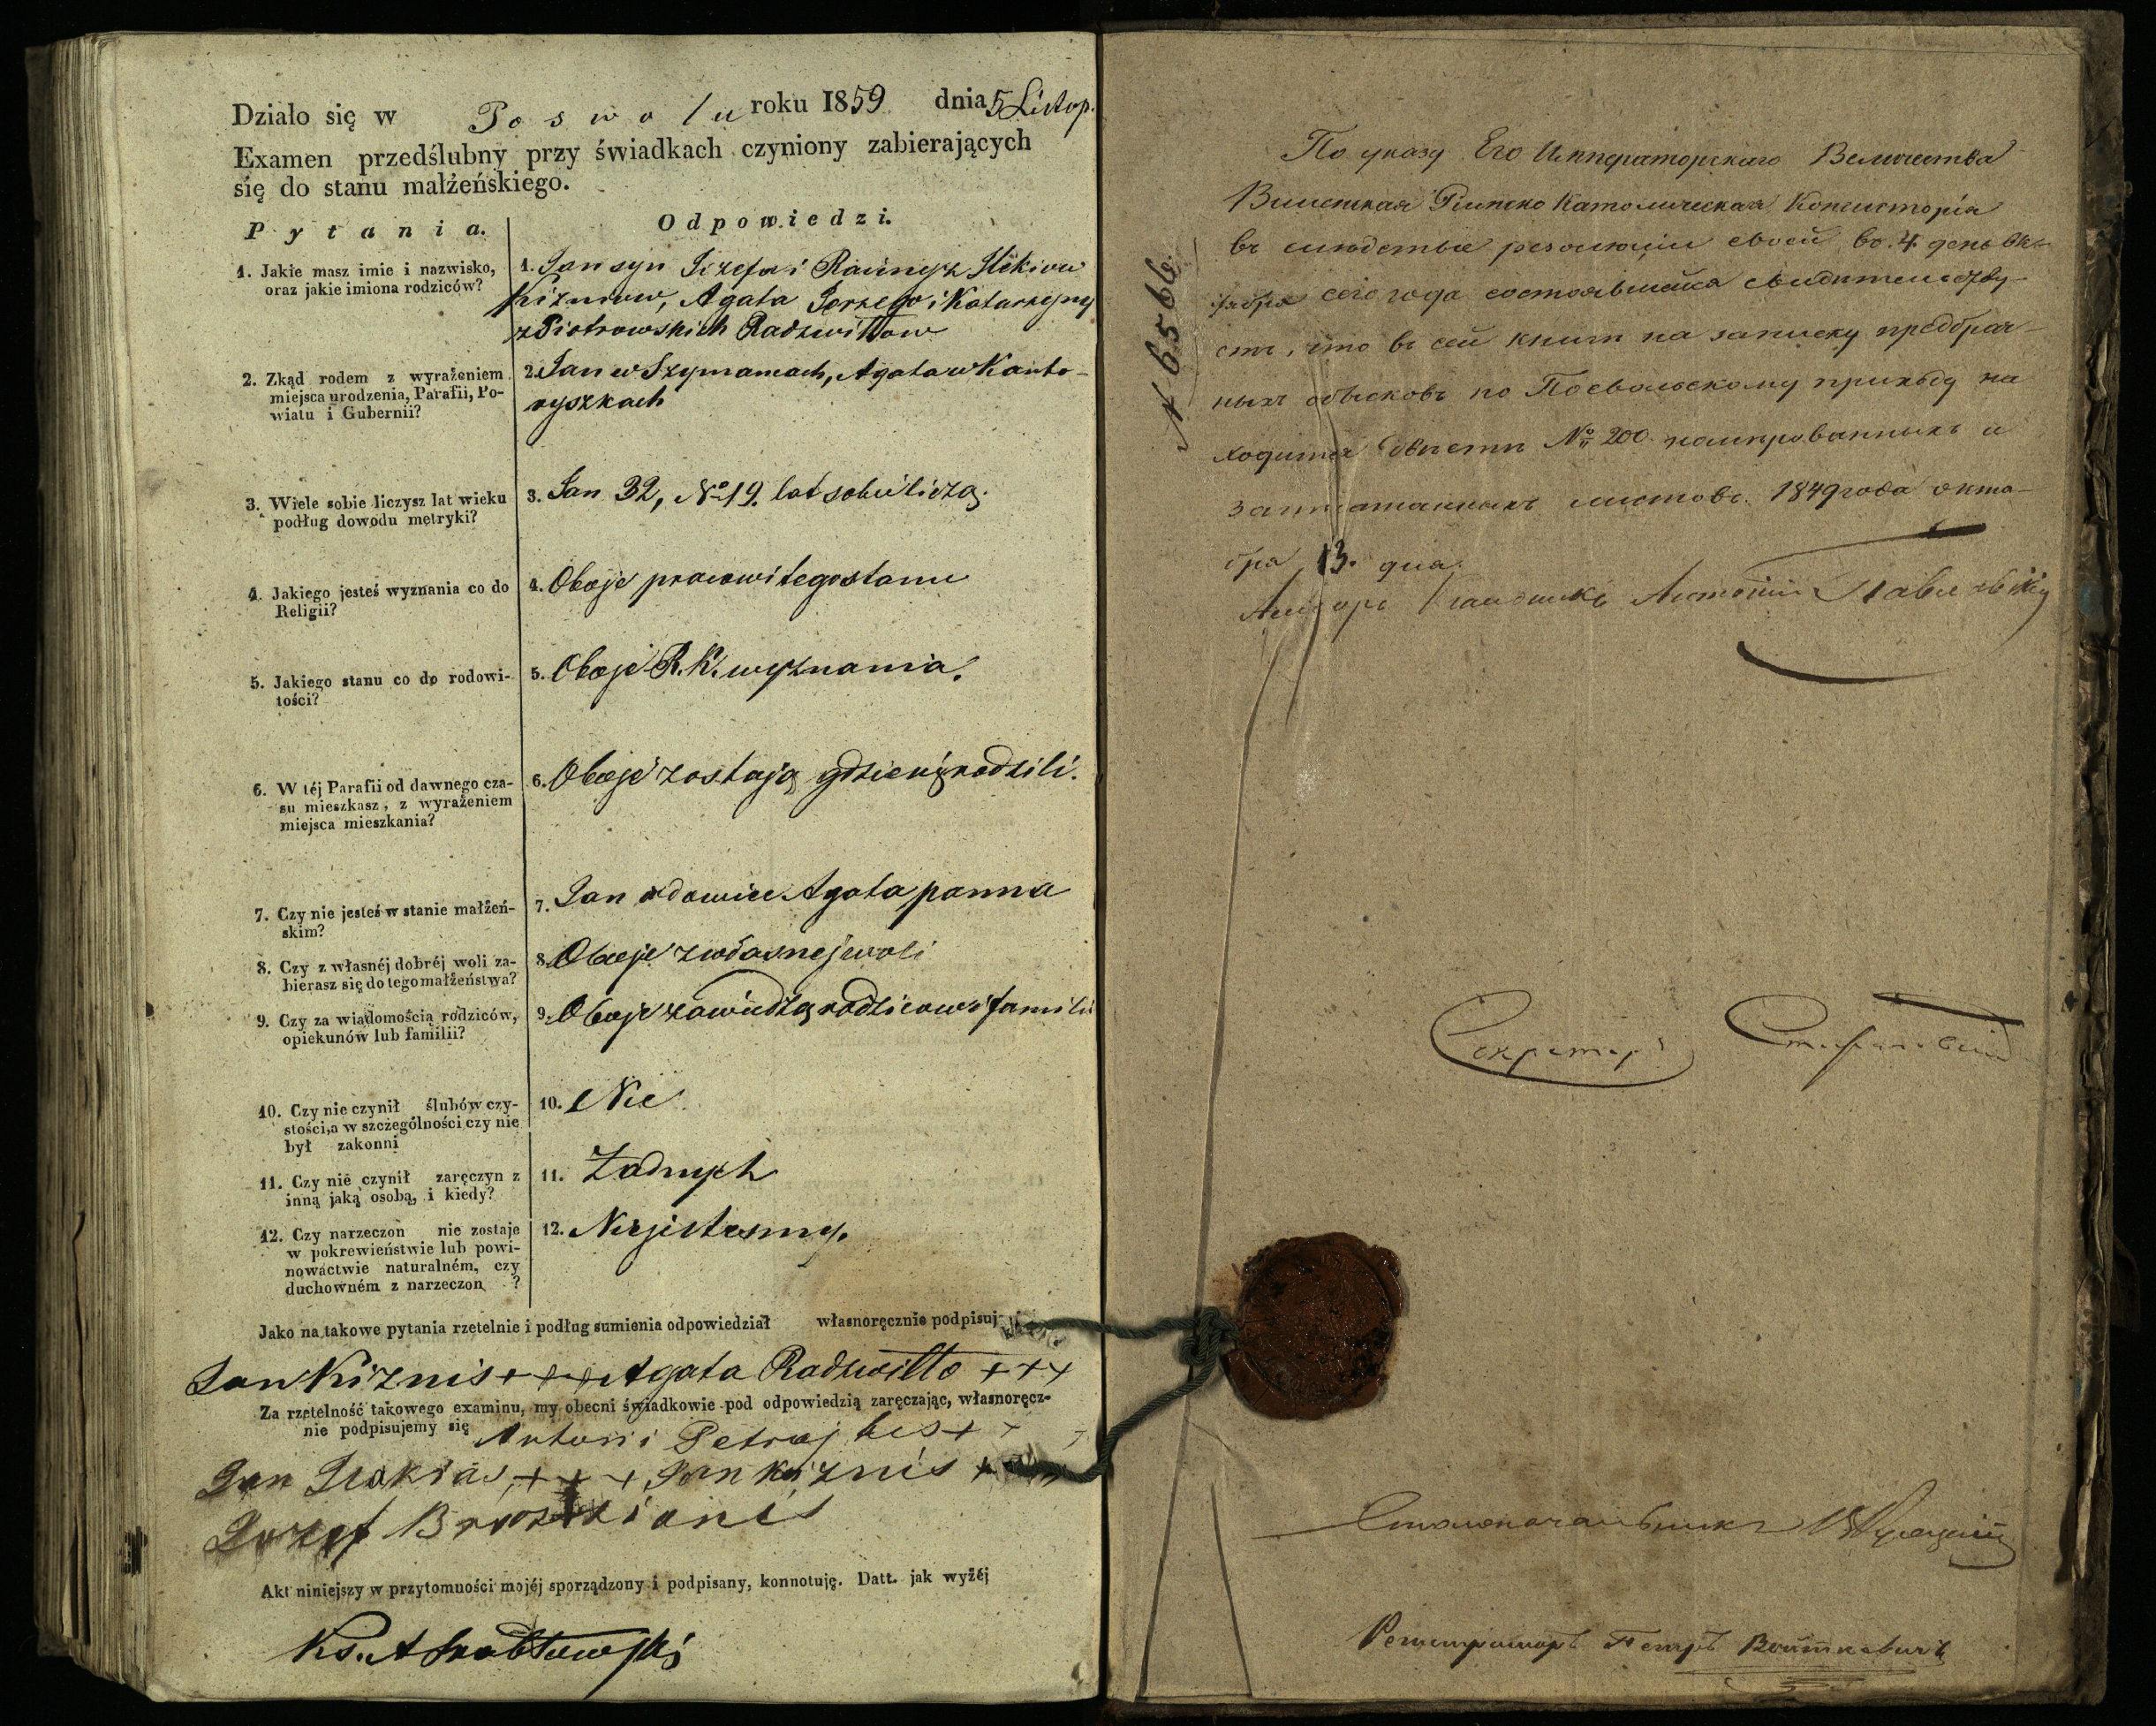 Działo się w Poswolu roku 1859 dnia 5 Listop.
Examen przedślubny przy świadkach czyniony zabierających
się do stanu małżeńskiego.
Pytania. Odpowiedzi.
1. Jakie masz imie i nazwisko,
oraz jakie imiona rodziców?
1. Jan syn Józefa i
Kizniow, Agata Jerzego i Katarzyny
z Piotrowskich Radzwiłłow
2. Zkąd rodem z wyrażeniem
miejsca urodzenia, Parafii, Po-
wiatu i Gubernii?
2. Jan w Szymanach, Agata w Kanto-
ryszkach
3. Wiele sobie liczysz lat wieku
podług dowodu metryki?
3. Jan 32, No 19. lat sobie liczą.
4. Jakiego jesteś wyznania co do
Religii?
4. Oboje pracowitego stanu
5. Jakiego stanu co do rodowi-
tości?
5. Oboje R. K. wyznania.
6. W téj Parafii od dawnego cza-
su mieszkasz, z wyrażeniem
miejsca mieszkania?
6. Oboje zostają gdzie się rodzili.
7. Czy nie jesteś w stanie małżeń-
skim?
7. Jan wdowiec Agata panna
8. Czy z własnéj dobréj woli za-
bierasz się do tego małżeństwa?
8. Oboje z własnej woli
9. Czy za wiadomością rodziców,
opiekunów lub familii?
9. Oboje za wiedzą rodzicow i familii
10. Czy nie czynił ślubów czy-
stości, a w szczególności czy nie
był zakonni
10. Nie
11. Czy nie czynił zaręczyn z
inną jaką osobą, i kiedy?
11. Żadnych
12. Czy narzeczon nie zostaje
w pokrewieństwie lub powi-
nowactwie naturalném, czy
duchowném z narzeczon ?
12. Niejestesmy.
Jako na takowe pytania rzetelnie i podług sumienia odpowiedział własnoręcznie podpisuj
Jan Kiznis +++ Agata Radzwiłło +++
Za rzetelność takowego examinu, my obecni świadkowie pod odpowiedzią zaręczając, własnoręcz-
nie podpisujemy się Antoni Petrajtes + + +
Jan +++ Jan Kiznis +
Jozef
Akt niniejszy w przytomności mojéj sporządzony i podpisany, konnotuję. Datt. jak wyżéj
Ks. A
N 6566.
По указу Его Императорскаго Величества
Виленская Римско Католическая Консисторія
въ слѣдствіе резолюціи своей, во 4 день Ок-
тября сего года состоявшейся свидѣтельству-
етъ, что въ сей книгѣ на записку предбрач-
ныхъ обысковъ по Посвольскому приходу на
ходится двѣсти № 200 нумерованныхъ и
запечатанныхъ листовъ. 1849 года октя-
бря 13. дня.
Ассесоръ Каноникъ Антоній
Секретарь
Столоначальникъ
Регистраторъ Петръ Войткевичъ